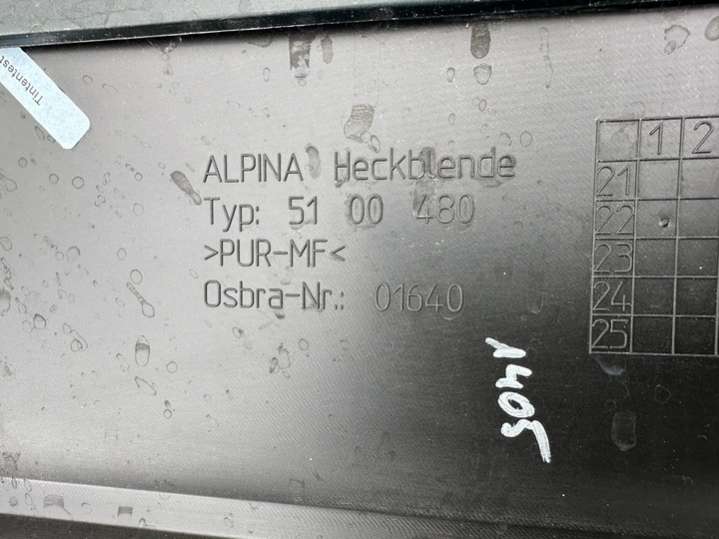 Tintentest
ALPINA Heckblende
Typ: 51 00 480
>PUR-MF<
Osbra-Nr.: 01640
1 2
21
22
23
24
25